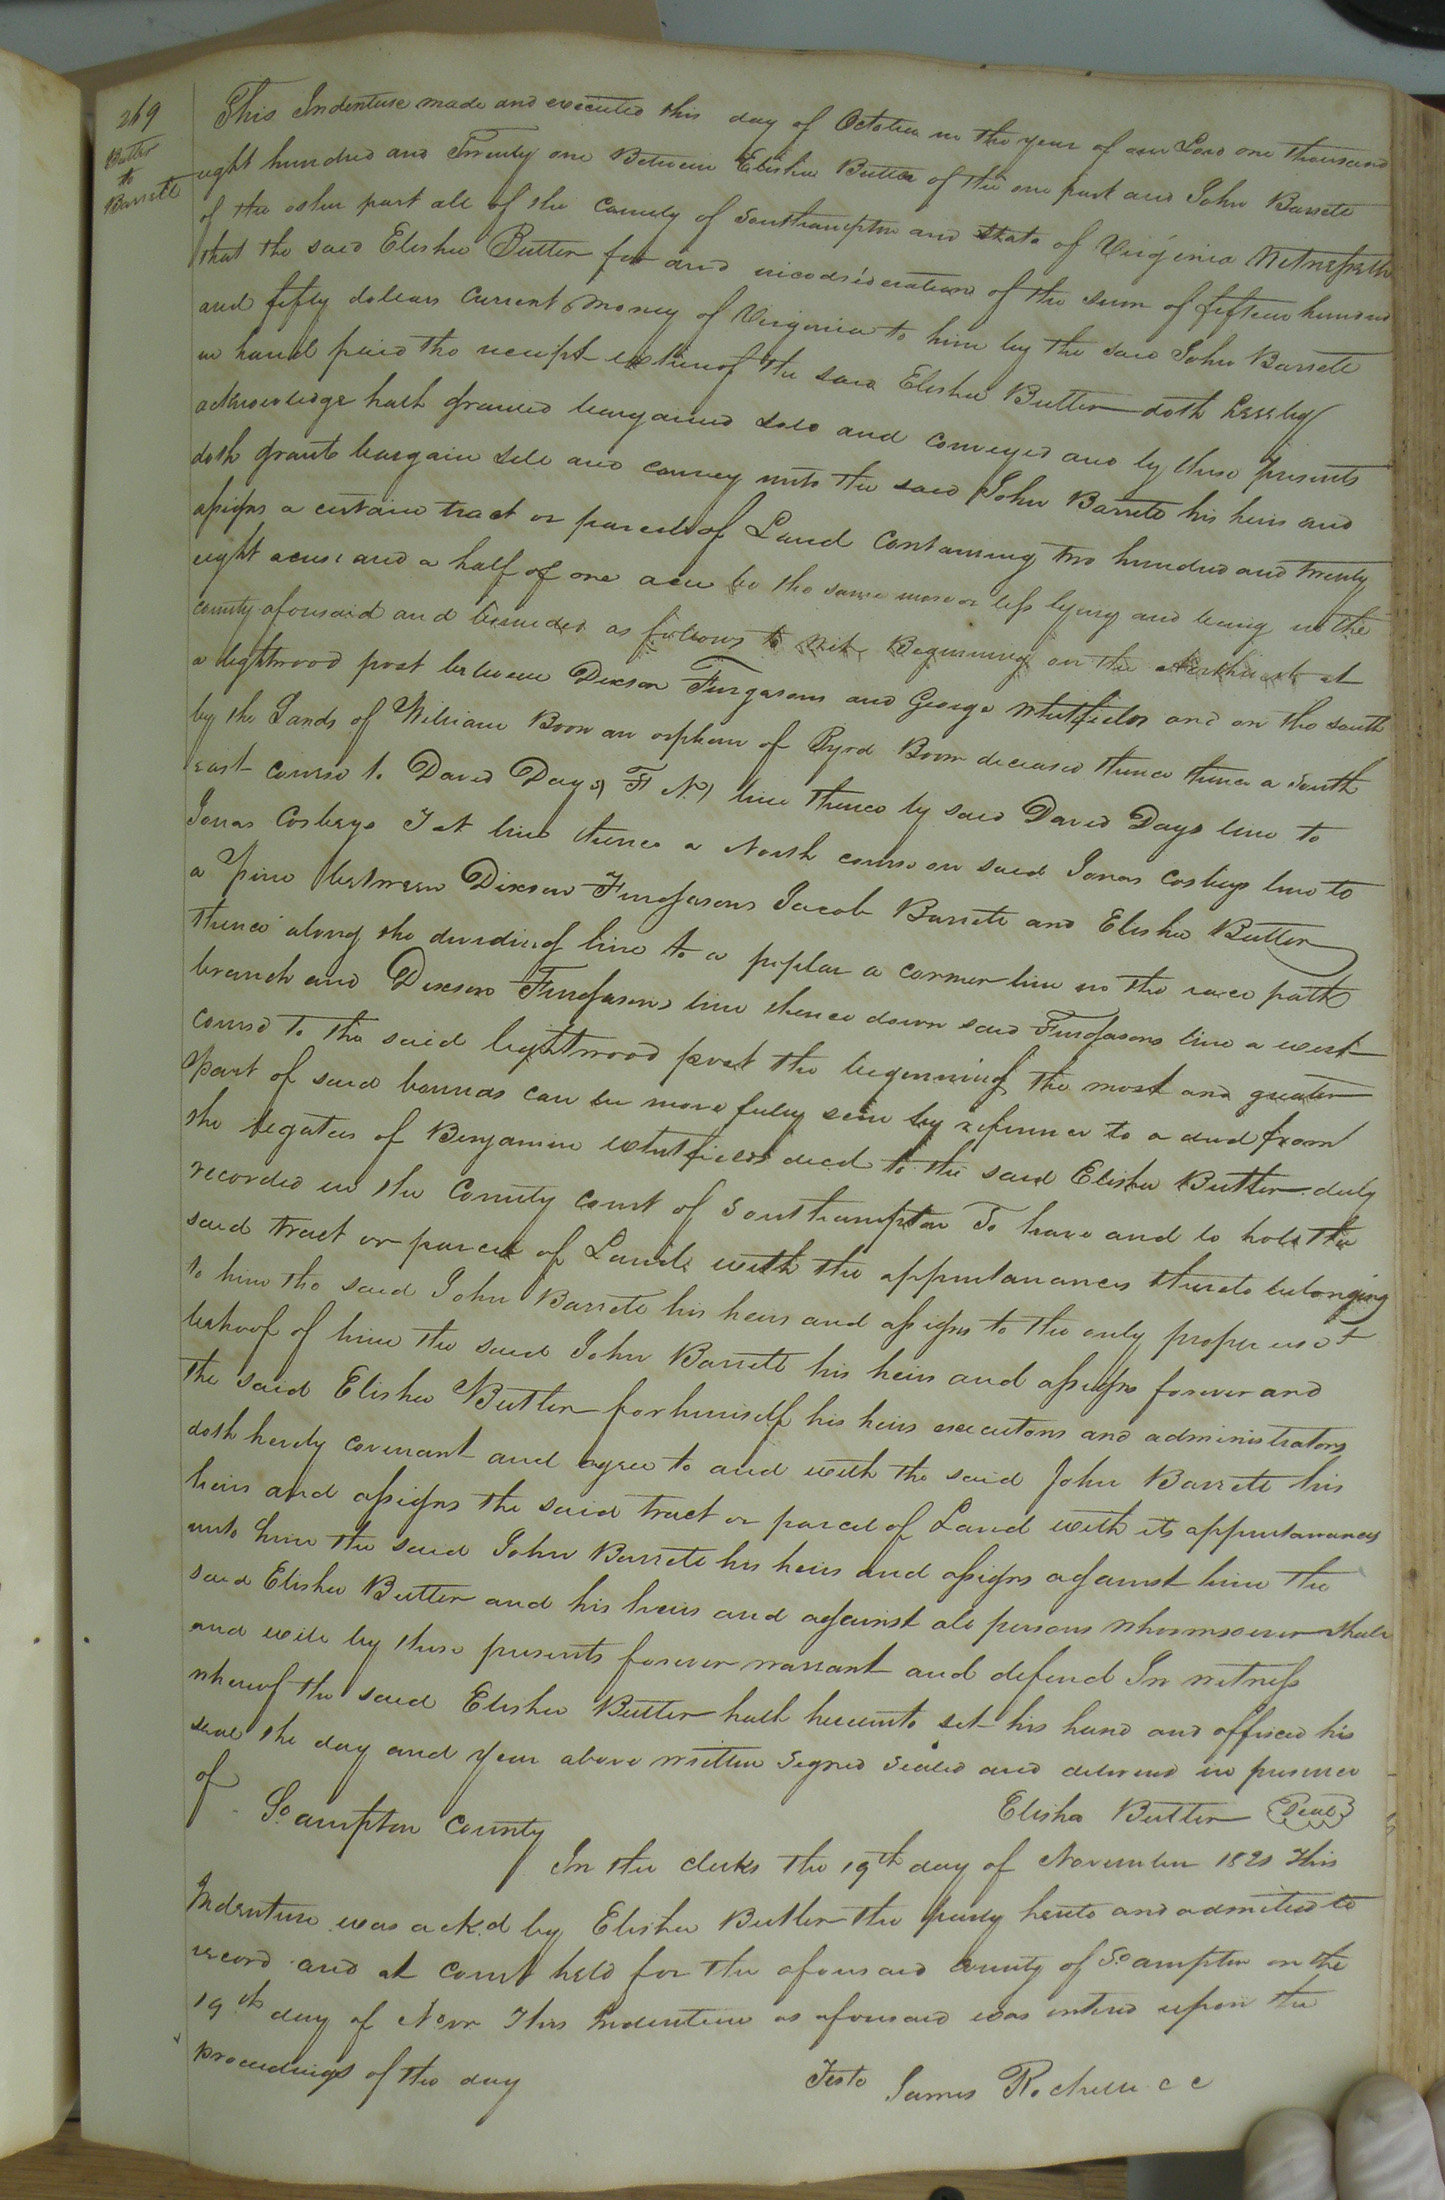 269
Butler
to
Barrett
This Indenture made and executed this day of October in the year of our Lord one thousand
eight hundred and Twenty one Between Elisha Butler of the one part and John Barrett
of the other part all of the County of Southampton and State of Virginia Witnesseth
that the said Elisha Butler for and in consideration of the sum of fifteen hundred
and fifty dollars Current Money of Virginia to him by the said John Barrett
in hand paid the receipt whereof the said Elisha Butler doth hereby
acknowledge hath granted bargained sold and conveyed and by these presents
doth grant bargain sell and convey unto the said John Barrett his heirs and
assigns a certain tract or parcel of Land Containing two hundred and twenty
eight acres and a half of one acre be the same more or less lying and being in the
county aforesaid and bounded as follows to wit Beginning on the at
a lightwood post between Dixson Furgasons and George Whitfields and on the south
by the Lands of William Boon an orphan of Byrd Boon deceased thence thence a south
east course to David Days line thence by said David Days line to
Jonas Cosbeys line thence a North course on said Jonas Cosbeys line to
a Pine between Dixson Furgasons Jacob Barrett and Elisha Butler
thence along the dividing line to a poplar a corner line in the race path
branch and Dixson Furgasons line thence down said Furgasons line a west
course to the said lightwood post the beginning the most and greater
part of said bounds can be more fully seen by reference to a deed from
the legatees of Benjamin Whitfield decd to the said Elisha Butler duly
recorded in the County Court of Southampton To have and to hold the
said tract or parcel of Land with the appurtanances thereto belonging
to him the said John Barrett his heirs and assigns to the only proper use &
behoof of him the said John Barrett his heirs and assigns forever and
the said Elisha Butler for himself his heirs executors and administrators
doth hereby covenant and agree to and with the said John Barrett his
heirs and assigns the said tract or parcel of Land with its appurtanances
unto him the said John Barrett his heirs and assigns against him the
said Elisha Butler and his heirs and against all persons whomsoever shall
and will by these presents forever warrant and defend In witness
whereof the said Elisha Butler hath hereunto set his hand and affixed his
seal the day and year above written Signed Sealed and delivered in presence
of
Elisha Butler Seal
So.ampton County
In the clerks the 19th day of November 1821 This
Indenture was ackd by Elisha Butler the party hereto and admitted to
record and at court held for the aforesaid county of So.ampton on the
19th day of Novr This Indenture as aforesaid was entered upon the
proceedings of the day
Teste James Rochelle c c